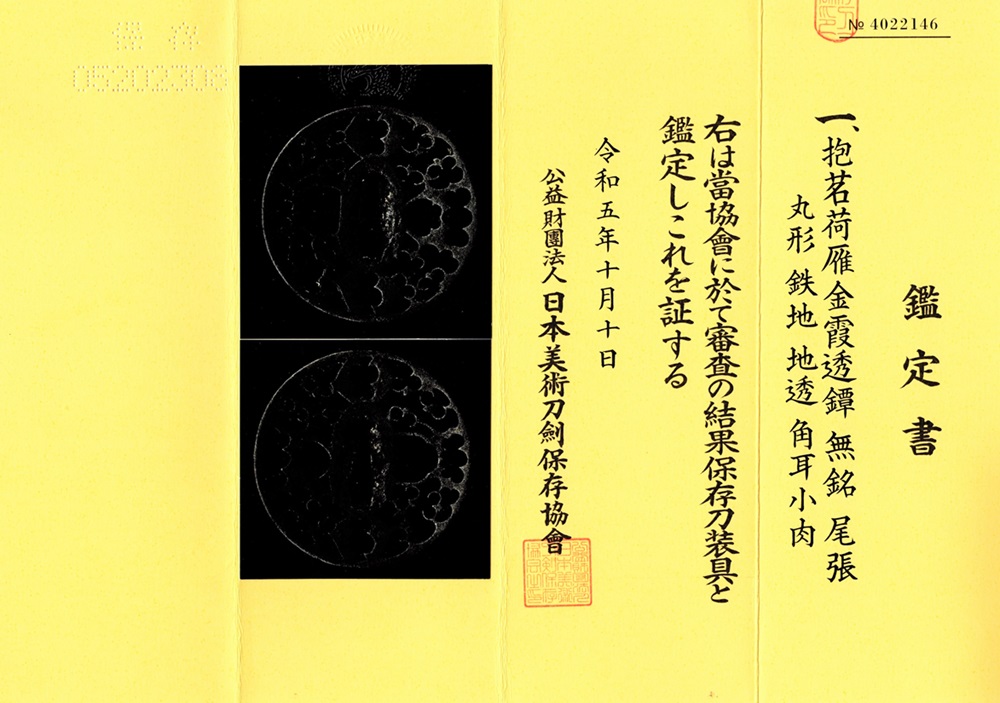 № 4022146
鑑定書
一、抱茗荷雁金霞透鐔 無銘 尾張
丸形 鉄地 地透 角耳小肉
右は當協會に於て審査の結果保存刀装具と
鑑定しこれを証する
令和五年十月十日
公益財團法人 日本美術刀劍保存協會
保存
05202308